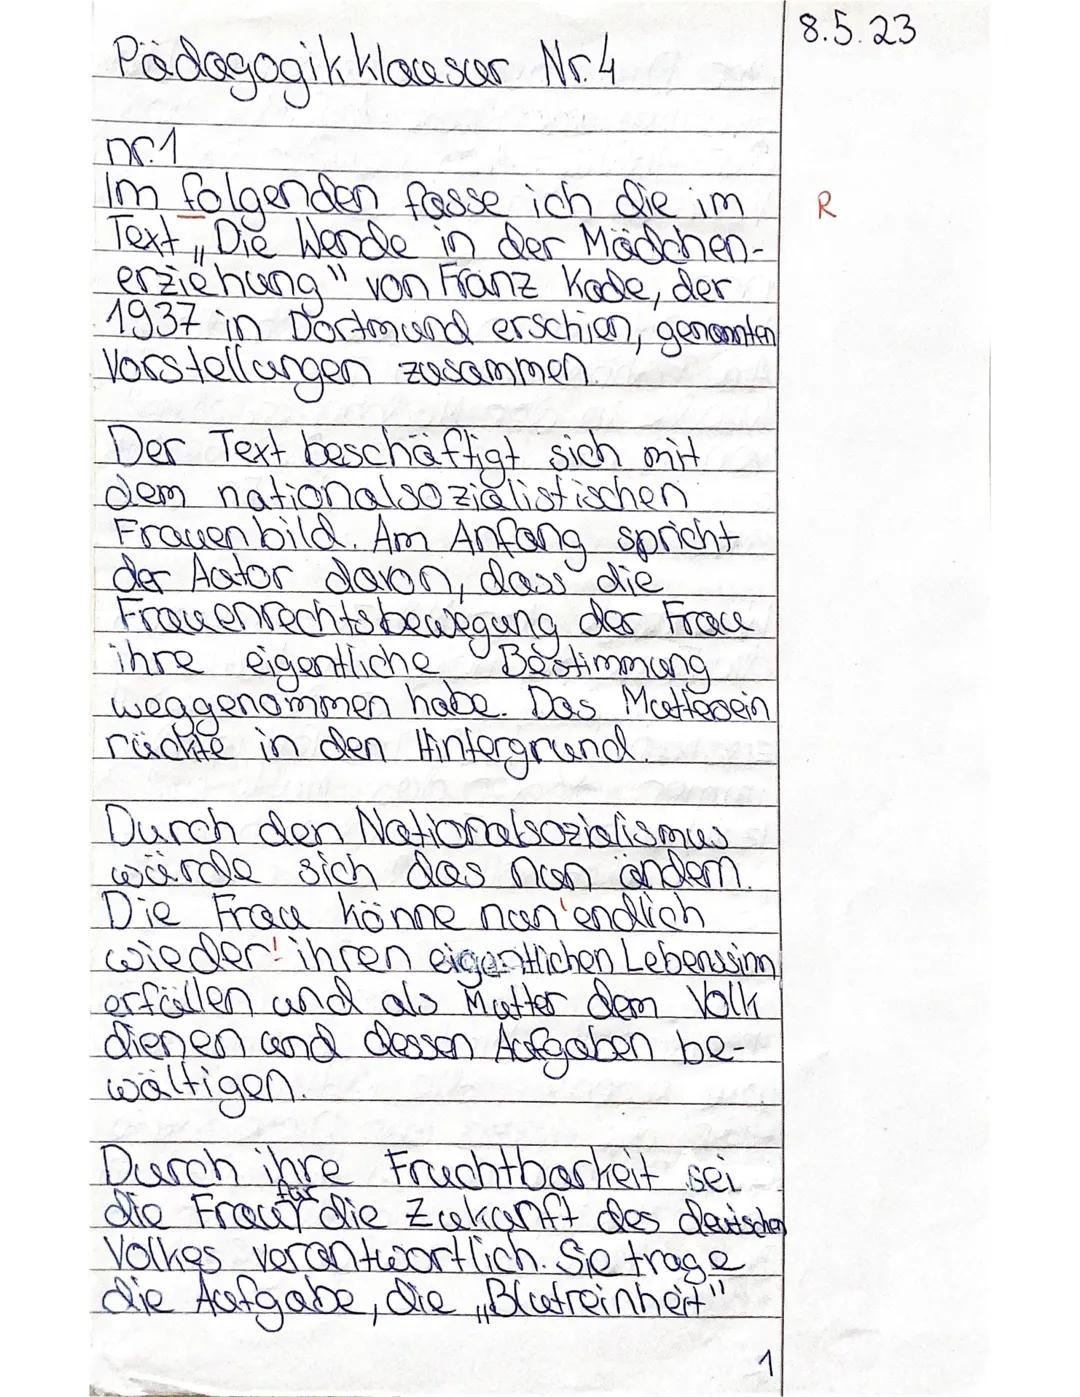 8.5.23
Pädagogikklausur Nr.4
nr.1
Im folgenden fasse ich die im
R
Text „Die Wende in der Mädchen-
erziehung" von Franz Kade, der
1937 in Dortmund erschien, genannten
Vorstellungen zusammen.
Der Text beschäftigt sich mit
dem nationalsozialistischen
Frauenbild. Am Anfang spricht
der Autor davon, dass die
Frauenrechtsbewegung der Frau
ihre eigentliche Bestimmung
weggenommen habe. Das Muttersein
rückte in den Hintergrund.
Durch den Nationalsozialismus
würde sich das nun ändern.
Die Frau könne nun 'endlich
wieder' ihren eigentlichen Lebenssinn
erfüllen und als Mutter dem Volk
dienen und dessen Aufgaben be-
wältigen.
Durch ihre Fruchtbarkeit sei
die Frau für die Zukunft des deutschen
Volkes verantwortlich. Sie trage
die Aufgabe, die „Blutreinheit"
1